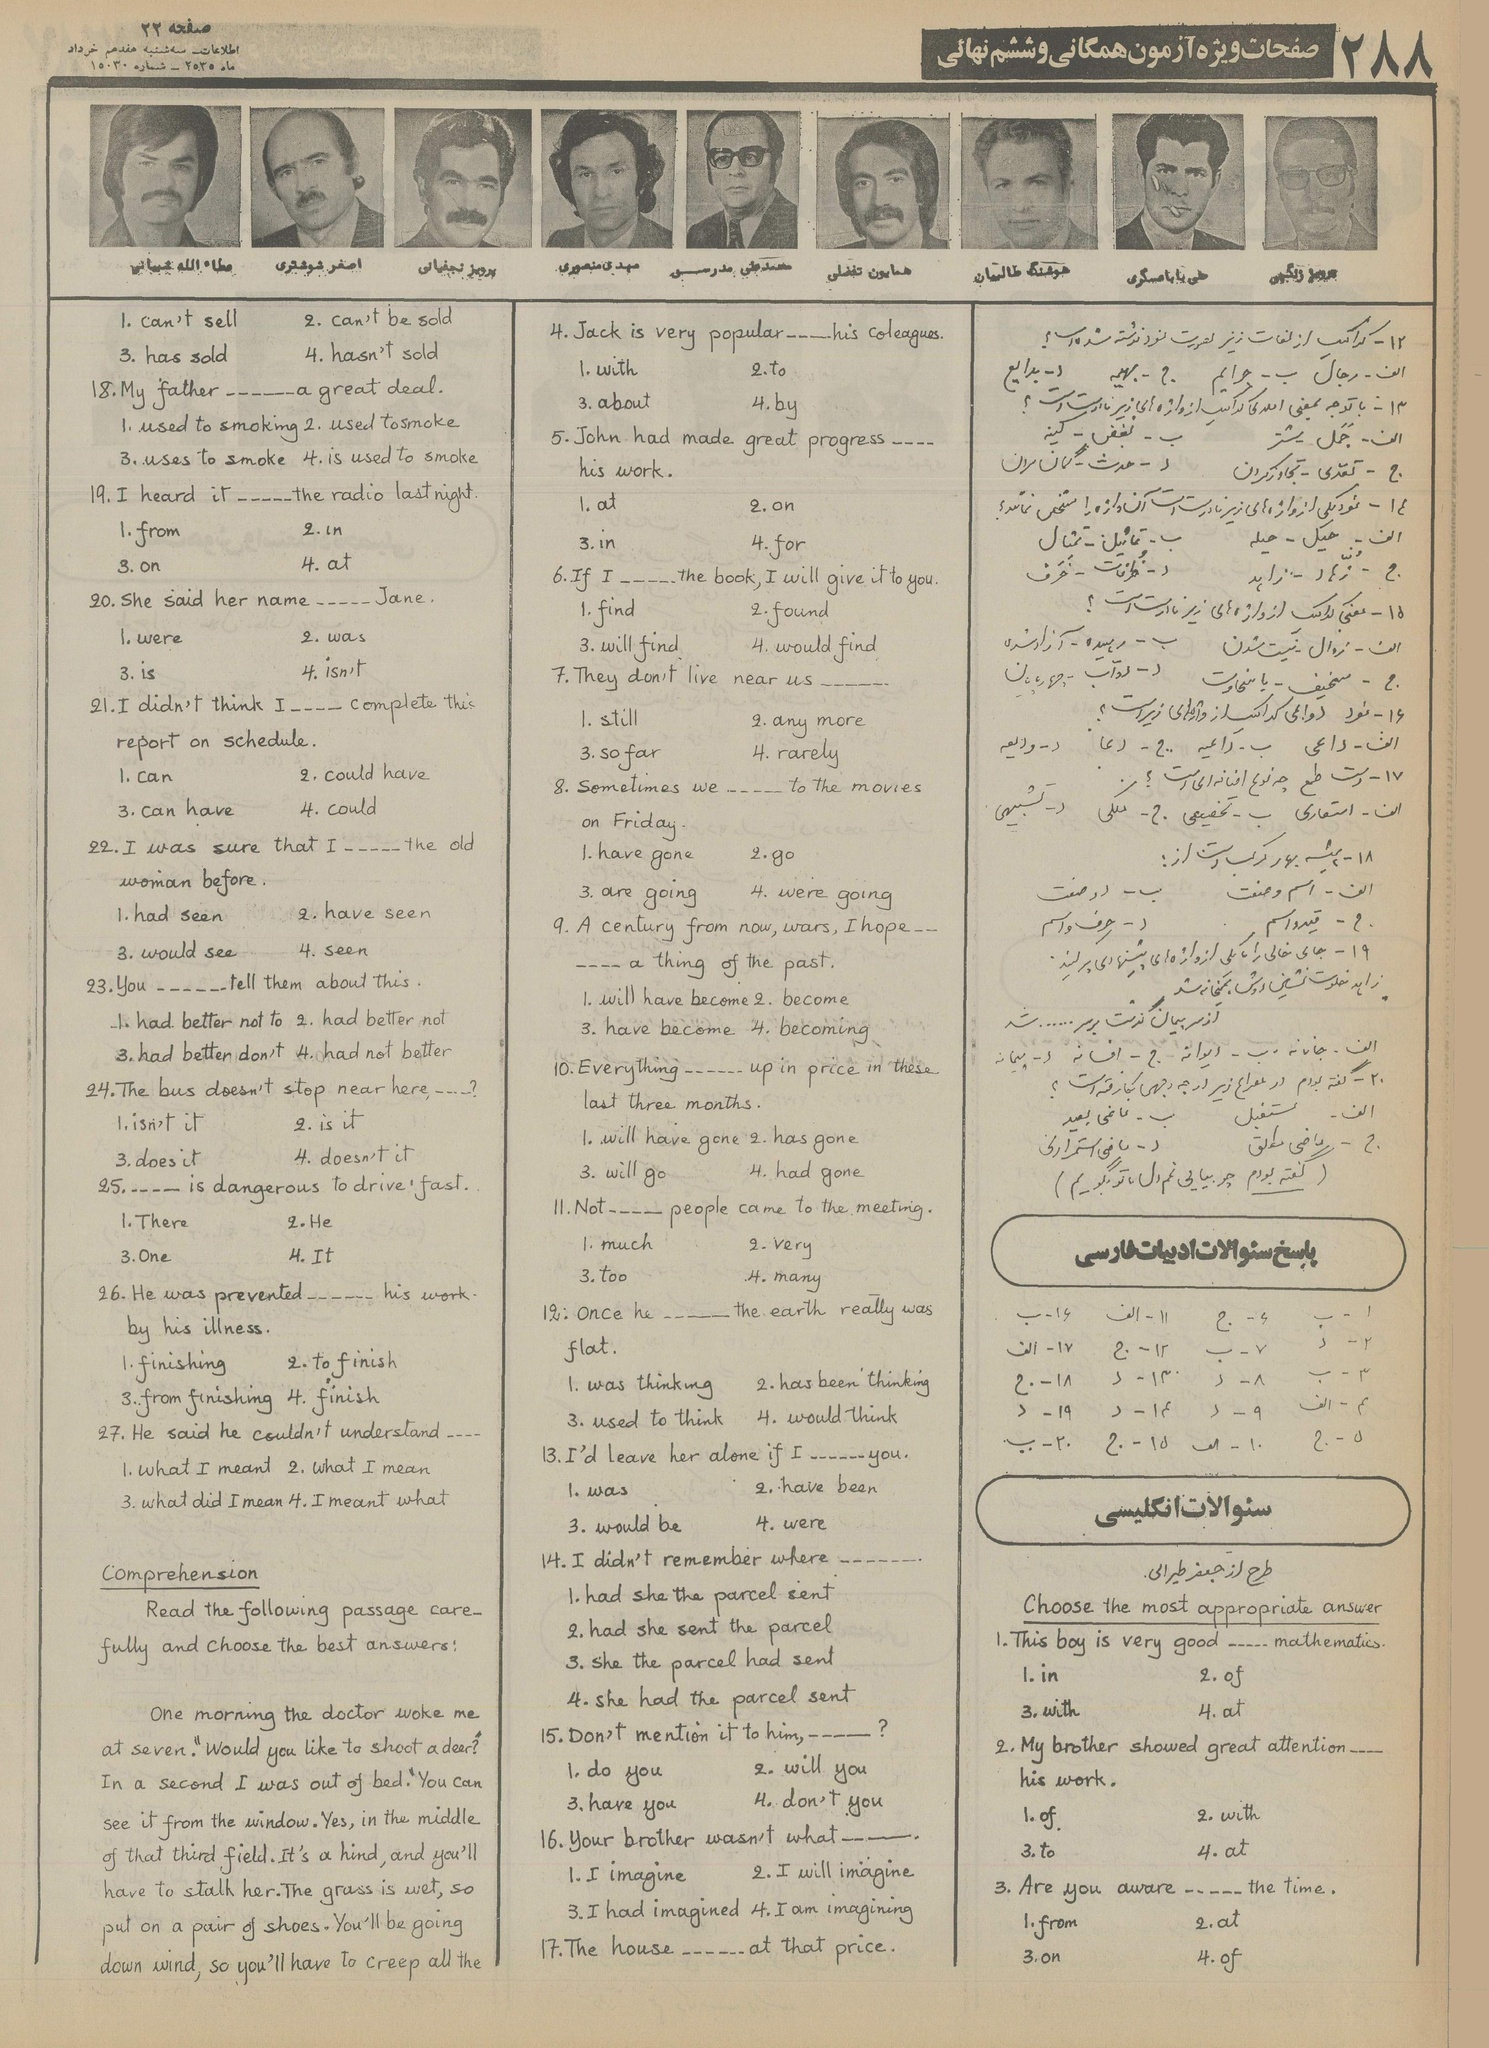 صفحه ۲۲
اطلاعات ـ سه‌شنبه هفدهم خرداد
ماه ۲۵۳۵ ـ شماره ۱۵۰۳۰
صفحات ویژه آزمون همگانی و ششم نهائی
۲۸۸
پرویز زنگهی
علی باباعسگری
هوشنگ طالبیان
همایون تفضلی
محمدعلی مدرسی
مهدی منصوری
پرویز نجفیانی
اصغر شوشتری
عطاء الله شیبانی
۱۲- کدامیک از لغات زیر بصورت مفرد نوشته شده است؟
الف- رجال ب- جرایم ج- بهیمه د- بدایع
۱۳- با توجه بمعنی اصلی کدامیک از واژه‌های زیر نادرست است؟
الف- جَمَل - شتر ب- بغض - کینه
ج- تعدی - تجاوز کردن د- حدث - گمان بردن
۱۴- مفرد یکی از واژه‌های زیر نادرست است آن واژه را مشخص نمائید؟
الف- حیَل - حیله ب- تماثیل - تمثال
ج- زُهّاد - زاهد د-
۱۵- معنی کدامیک از واژه‌های زیر نادرست است؟
الف- زوال - نیست شدن ب- رهیده - آزاد شده
ج- سخیف - با سخاوت د- دوآب - چهارپایان
۱۶- مفرد دواعی کدامیک از واژه‌های زیر است؟
الف- داعی ب- داعیه ج- دعا د- ودیعه
۱۷- دست طمع چه نوع اضافه‌ای است؟
الف- استعاری ب- تخصیصی ج- ملکی د- تشبیهی
۱۸- همیشه بهار مرکب است از:
الف- اسم و صفت ب- دو صفت
ج- قید و اسم د- حرف و اسم
۱۹- جای خالی را با یکی از واژه‌های پیشنهادی پر کنید.
زاهد خلوت نشین دوش بمیخانه شد
از سر پیمان گذشت بر سر ...... شد
الف- جانانه ب- دیوانه ج- افسانه د- پیمانه
۲۰- گفته بودم در مصراع زیر در چه وجهی بکار رفته است؟
الف- مستقبل ب- ماضی بعید
ج- ماضی مطلق د- ماضی استمراری
(گفته بودم چو بیایی غم دل با تو بگویم)
پاسخ سئوالات ادبیات فارسی
۱- ب ۶- ج ۱۱- الف ۱۶- ب
۲- د ۷- ب ۱۲- ج ۱۷- الف
۳- ب ۸- د ۱۳- د ۱۸- ج
۴- الف ۹- د ۱۴- د ۱۹- د
۵- ج ۱۰- الف ۱۵- ج ۲۰- ب
سئوالات انگلیسی
طرح از جعفر طیرانی.
Choose the most appropriate answer
1. This boy is very good ----- mathematics.
1. in 2. of
3. with 4. at
2. My brother showed great attention ----
his work.
1. of 2. with
3. to 4. at
3. Are you aware ----- the time.
1. from 2. at
3. on 4. of
4. Jack is very popular ---- his coleagues.
1. with 2. to
3. about 4. by
5. John had made great progress ----
his work.
1. at 2. on
3. in 4. for
6. If I ----- the book, I will give it to you.
1. find 2. found
3. will find 4. would find
7. They don't live near us ------
1. still 2. any more
3. so far 4. rarely
8. Sometimes we ------ to the movies
on Friday.
1. have gone 2. go
3. are going 4. were going
9. A century from now, wars, I hope --
---- a thing of the past.
1. will have become 2. become
3. have become 4. becoming
10. Everything ------ up in price in these
last three months.
1. will have gone 2. has gone
3. will go 4. had gone
11. Not ----- people came to the meeting.
1. much 2. very
3. too 4. many
12. Once he ------ the earth really was
flat.
1. was thinking 2. has been thinking
3. used to think 4. would think
13. I'd leave her alone if I ------ you.
1. was 2. have been
3. would be 4. were
14. I didn't remember where -------.
1. had she the parcel sent
2. had she sent the parcel
3. she the parcel had sent
4. she had the parcel sent
15. Don't mention it to him, ----- ?
1. do you 2. will you
3. have you 4. don't you
16. Your brother wasn't what ------.
1. I imagine 2. I will imagine
3. I had imagined 4. I am imagining
17. The house ------ at that price.
1. can't sell 2. can't be sold
3. has sold 4. hasn't sold
18. My father ------ a great deal.
1. used to smoking 2. used to smoke
3. uses to smoke 4. is used to smoke
19. I heard it ----- the radio last night.
1. from 2. in
3. on 4. at
20. She said her name ----- Jane.
1. were 2. was
3. is 4. isn't
21. I didn't think I ---- complete this
report on schedule.
1. can 2. could have
3. can have 4. could
22. I was sure that I ----- the old
woman before.
1. had seen 2. have seen
3. would see 4. seen
23. You ------ tell them about this.
1. had better not to 2. had better not
3. had better don't 4. had not better
24. The bus doesn't stop near here, ----?
1. isn't it 2. is it
3. does it 4. doesn't it
25. ----- is dangerous to drive fast.
1. There 2. He
3. One 4. It
26. He was prevented ------ his work
by his illness.
1. finishing 2. to finish
3. from finishing 4. finish
27. He said he couldn't understand ----
1. what I meant 2. what I mean
3. what did I mean 4. I meant what
Comprehension
Read the following passage care-
fully and choose the best answers:
One morning the doctor woke me
at seven. "Would you like to shoot a deer?"
In a second I was out of bed. "You can
see it from the window. Yes, in the middle
of that third field. It's a hind, and you'll
have to stalk her. The grass is wet, so
put on a pair of shoes. You'll be going
down wind, so you'll have to creep all the